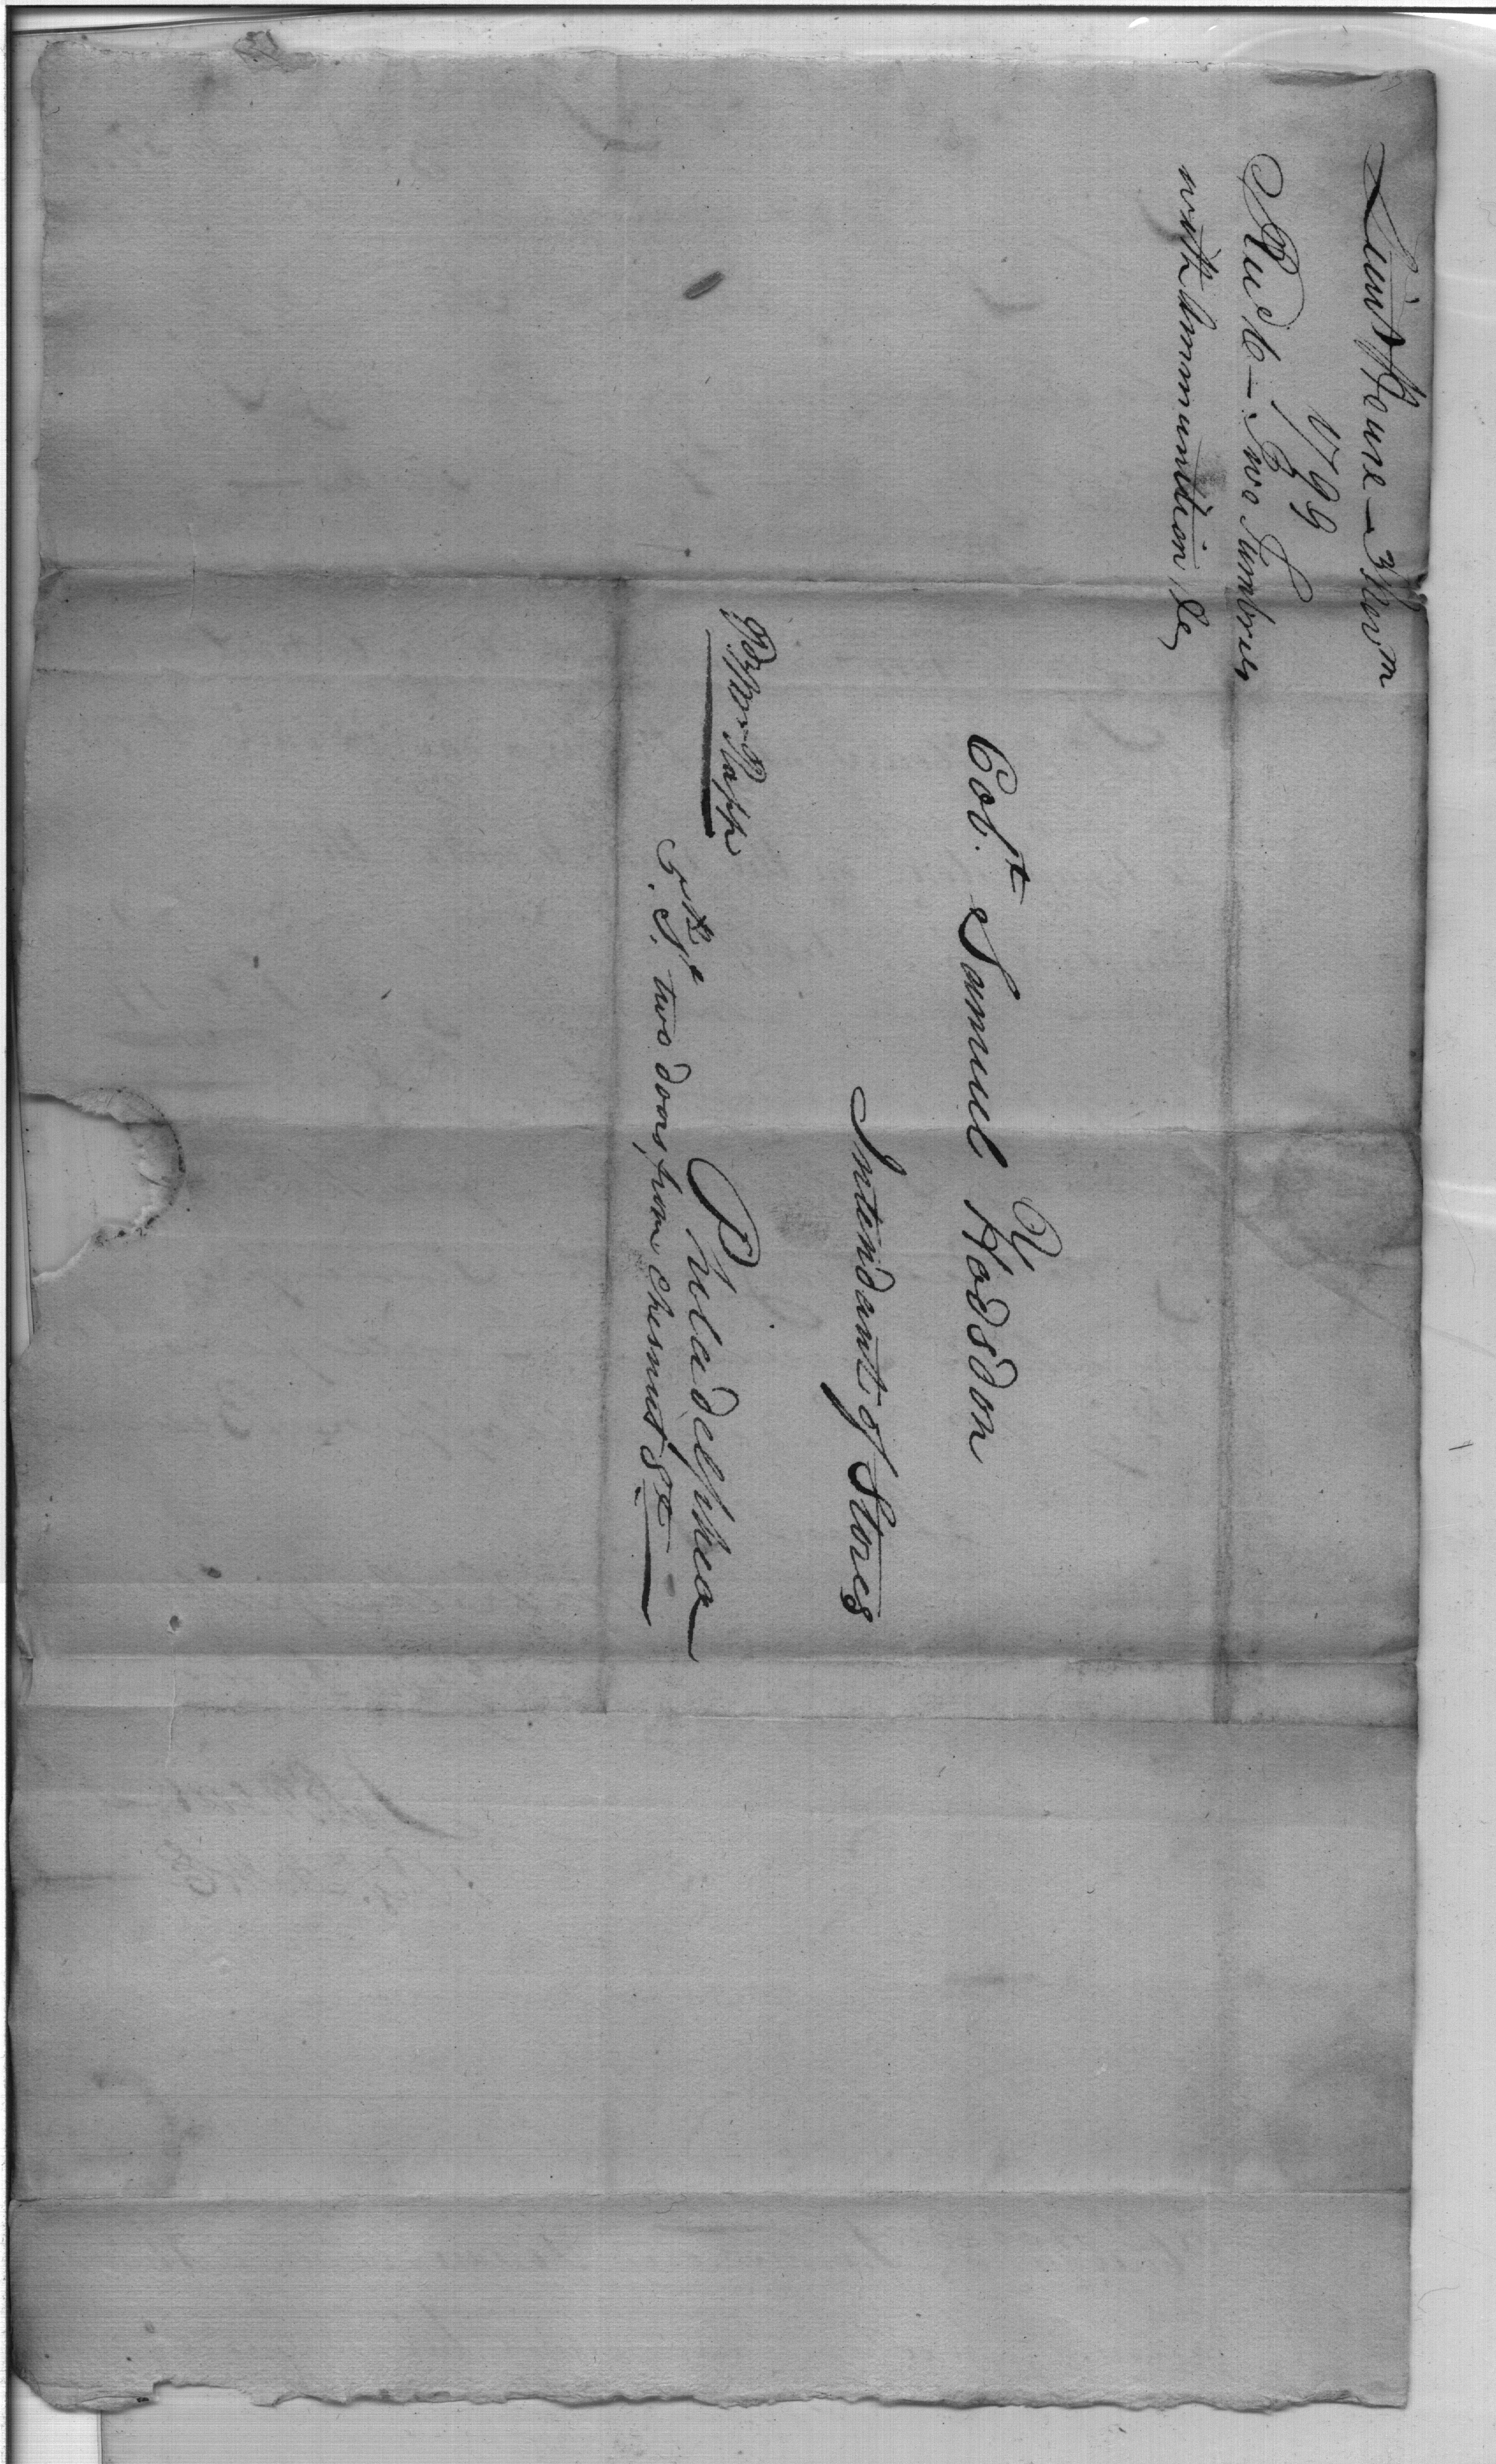 Lieut House – 3 Novm
1799
Rec'd 6 – Two Tumbrils
with Ammunition &c
Colt. Samuel Hodsdon
Intendant of Stores
Philadelphia
5th St. two doors from Chesnut St